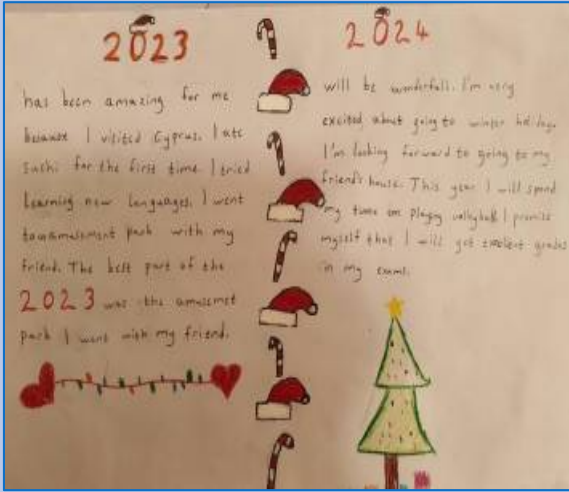 2023
has been amazing for me
because I visited Cyprus. I ate
sushi for the first time. I tried
learning new languages. I went
to amusement park with my
friend. The best part of the
2023 was the amusemet
park I went with my friend.
2024
will be wonderfull. I'm very
excited about going to winter holiday.
I'm looking forward to going to my
friend's house. This year I will spend
my time on playing volleyball. I promise
myself that I will get excellent grades
in my exams.